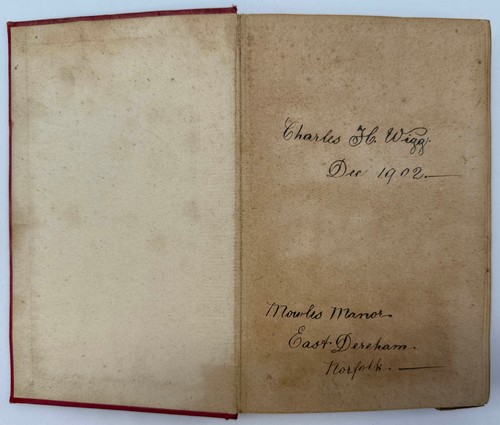 Charles H. Wigg.
Dec 1902.—
Mowles Manor.
East Dereham.
Norfolk.—